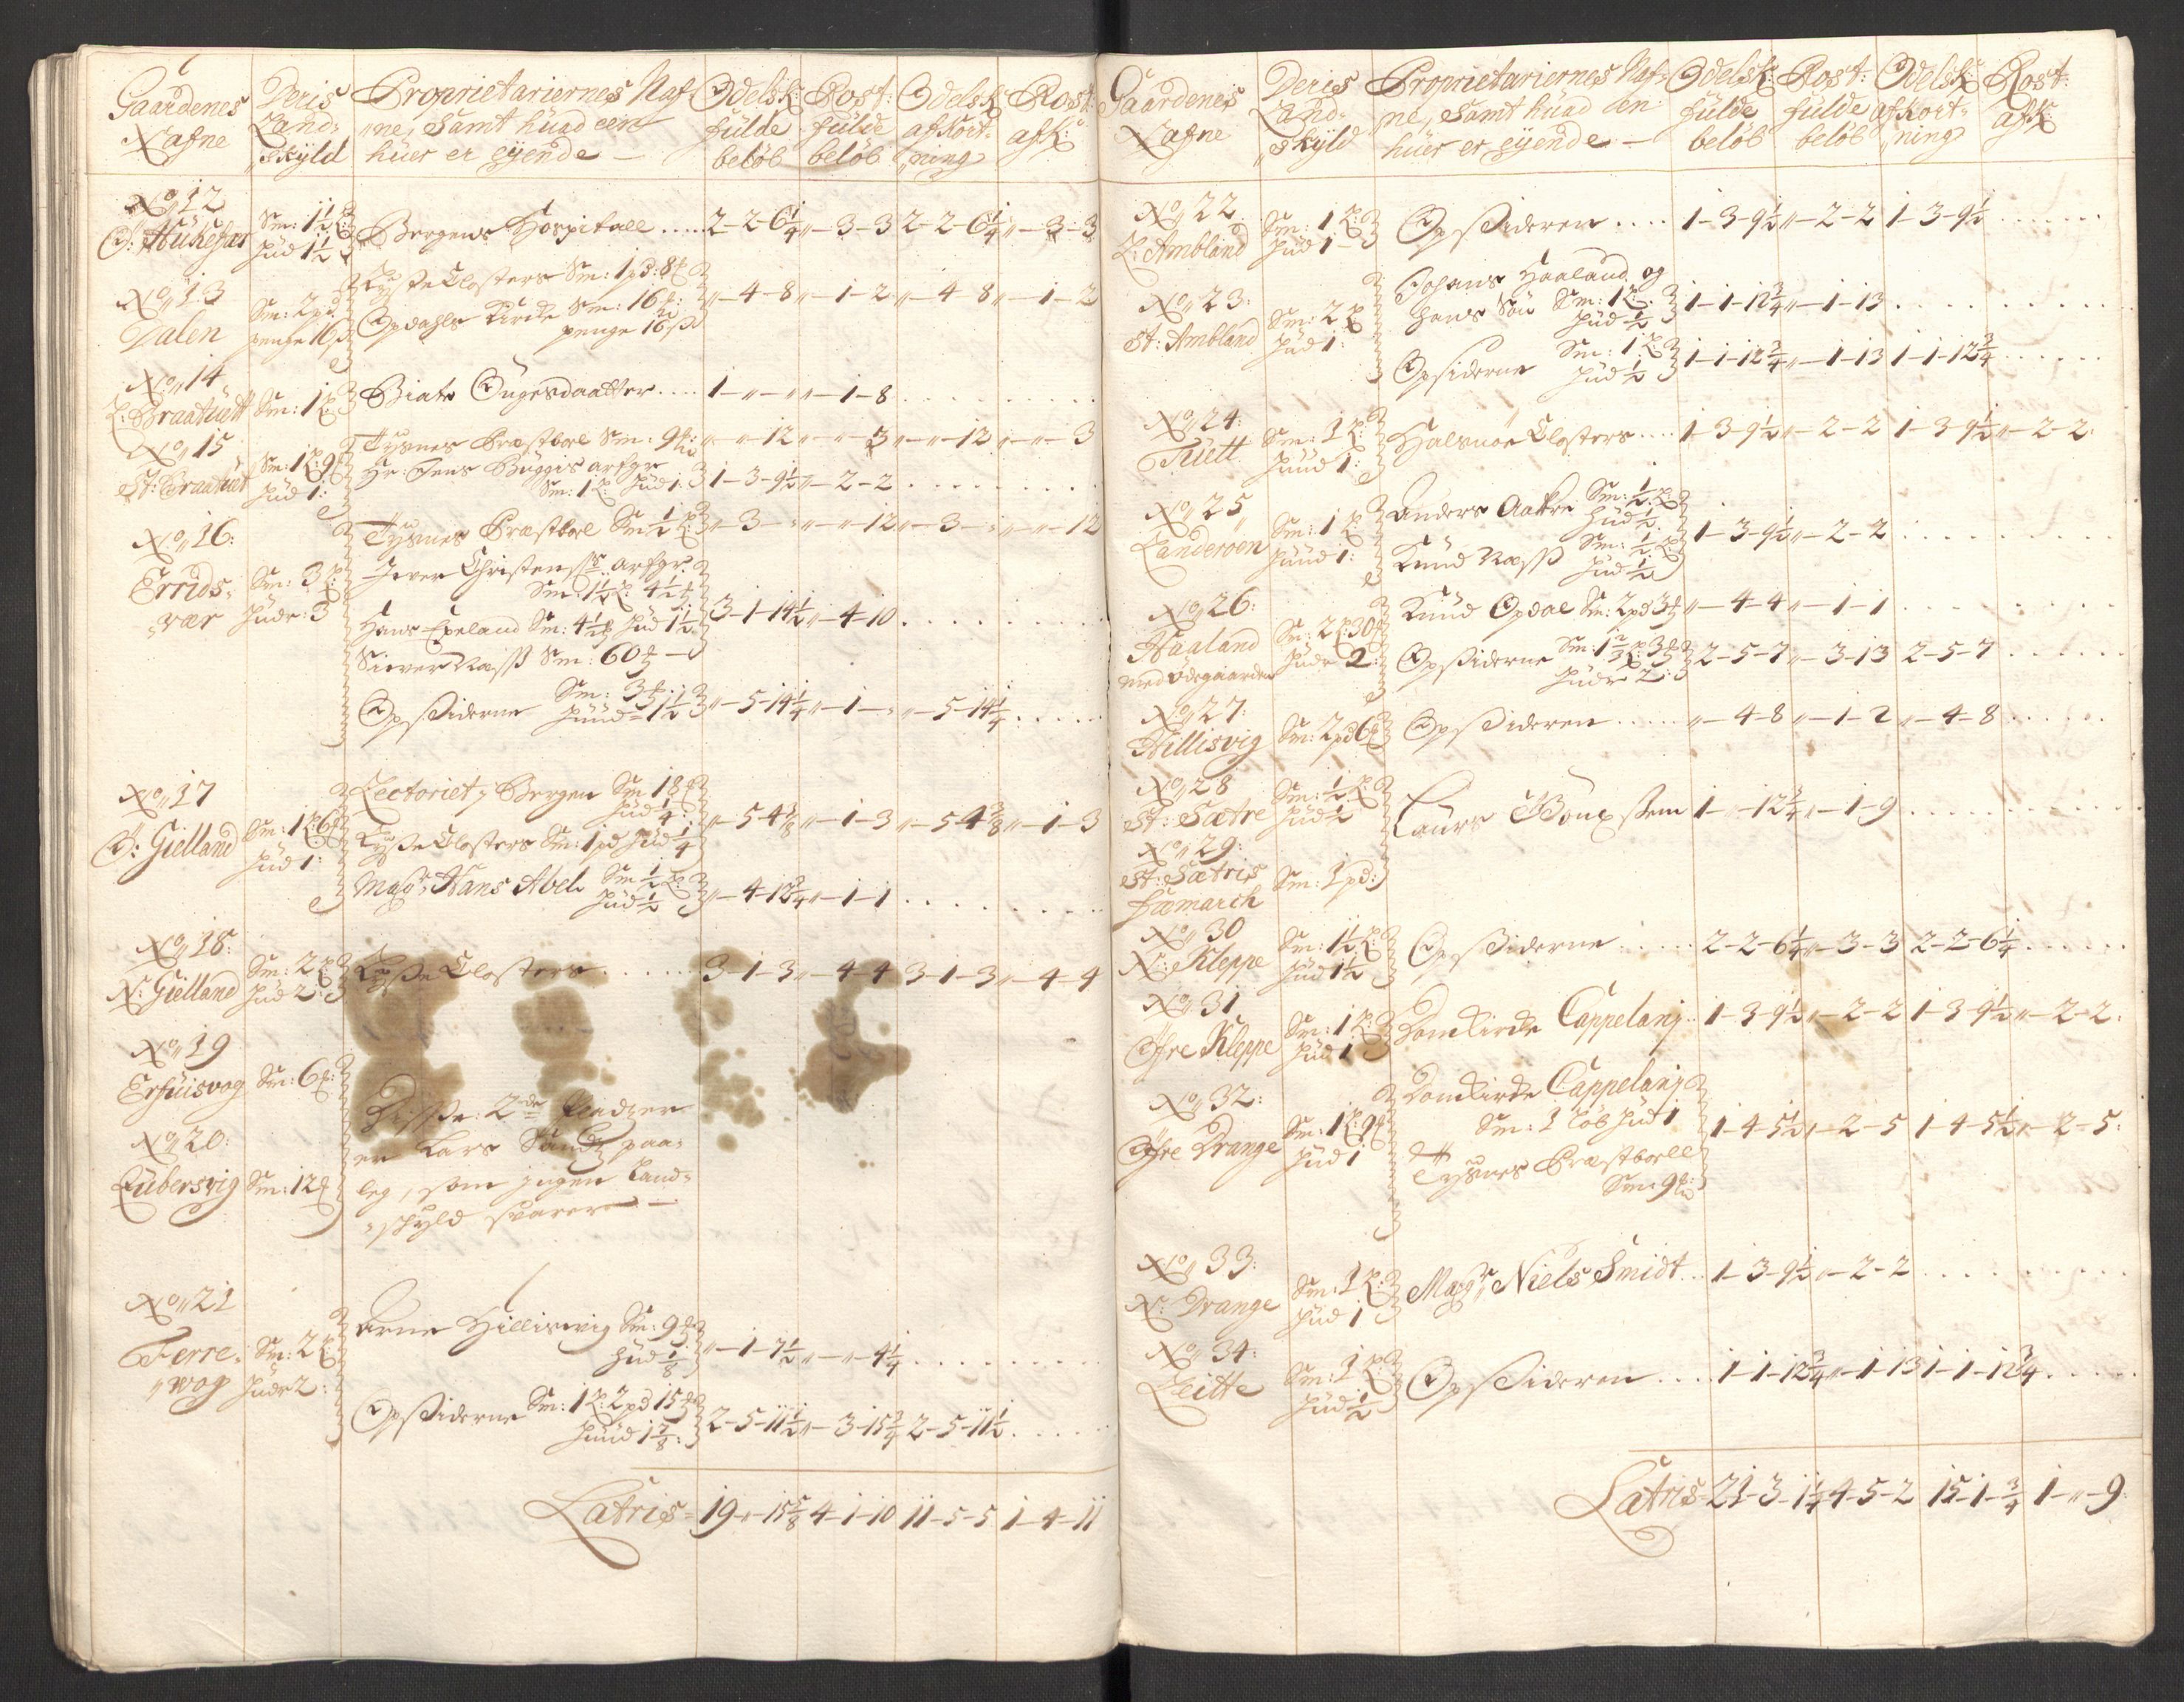 Gaardenes Nafne
Deris Land„skyld
Proprietariernes Naf„ne, Samt huad een huer er eyende –
Odelsk: fulde beløb
Rost: fulde beløb
Odelsk afkort„ning
Rost: afk:
No„12
O: Hukefær Sm: 1½ L: Hud 1½ Bergens Hospitall ..... 2–2–6¼ „–3–3 2–2–6¼ „–3–3
No„13
Dalen Sm: 2 pd penge 16 ß Lyse Closters Sm: 1 pd: 8 „–4–8 „–1–2 „–4–8 „–1–2
Opdahls Kirke Sm: 16
penge 16 ß
No„14
L: Braatuët Sm: 1 L: Biate Ougesdaatter .... 1–„–„ „–1–8
No„15
St: Braatuët Sm: 1 L: 9 Hud 1: Tysnes Præstboel Sm: 9 „–„–12 „–„–3 „–„–12 „–„–3
Hr: Jens Buggis arfgr Sm: 1 L: Hud 1: 1–3–9½ „–2–2
No„16:
Errids„vær Sm: 3 L: Huder: 3 Tysnes Præstboel Sm ½ L: „–3–„ „–„–12 „–3–„ „–„–12
Iver Christenss: arfgr.
Sm: 1½ L: 4½
Hans Epeland Sm: 4½ Hud 1½ 3–1–14½ „–4–10
Siever Næss Sm: 60
Opsidderne Sm: 3 Huud 1½ „–5–14¼ „–1–„ „–5–14¼
No„17
O: Gielland Sm: 1 L: 6 Hud 1: Lectoriet i Bergen Sm 18 Hud ¼
Lyse Closters Sm: 1 pd Hud ¼ „–5–4⅜ „–1–3 „–5–4⅜ „–1–3
Majr: Hans Abel Sm ½ L: Hud ½ „–4–12¾ „–1–1
No„18:
N: Gielland Sm: 2 L: Hud 2: Lyse Closters ...... 3–1–3 „–4–4 3–1–3 „–4–4
No„19
Erfuisvog Sm: 6
Disse: 2de Pladzer
No„20:
er Lars Sund paa„
Lubersvig Sm: 12
leg, som ingen Land„
„skyld svarer –
No„21
Ferre„vog Sm: 2 L: Huder 2: Arne Hillisvig Sm: 9 Hud ⅛ „–1–7½ „–„–4¼
Opsidderne Sm: 1 L: 2 pd 15 Huud 1⅞: 2–5–11½ „–3–15¾ 2–5–11½
Latris– 19–„–15⅝ 4–1–10 11–5–5 1–4–11
Gaardenes Nafne
Deris Land„skyld
Proprietariernes Naf„ne, Samt huad en huer er eyende –
Odelsk: fulde beløb
Rost: fulde beløb
Odelsk: afkort„ning
Rost: afk:
No„22
L: Ambland Sm: 1 L: Hud 1– Opsidderen .... 1–3–9½ „–2–2 1–3–9½
No„23:
St: Ambland Sm: 2 L Hud 1: Johans Haaland og
hans Søn Sm: 1 L: Hud ½ 1–1–12¾ „–1–13
Opsiderne Sm: 1 L: Hud ½ 1–1–12¾ „–1–13 1–1–12¾
No„24:
Tuett Sm: 1 L: Huud 1: Halsnøe Closters .... 1–3–9½ „–2–2 1–3–9½ „–2–2:
No„25„
Landerøen Sm: 1 L: Huud 1: Anders Aakre Sm: ½ L: Hud ½
Knud Næss Sm: ½ L: Hud ½ 1–3–9½ „–2–2
No„26:
Haaland med ødegaarden Sm: 2 L: 30 Huder 2: Knud Opdal Sm: 2 pd 3 „–4–4 „–1–1
Opsidderne Sm: 1⅔ L: 3 Huder 2: 2–5–7 „–3–13 2–5–7
No„27:
Hillisvig Sm: 2 pd 6 Opsidderen ..... „–4–8 „–1–2 „–4–8
No„28
St: Sætre Sm: ½ L: Hud ½ Laurs 1–„–12¾ „–1–9
No„29:
St: Sætris Fæmarch Sm: 1 pd:
No„30
N: Kleppe Sm: 1½ L: Hud 1½ Opsidderne ..... 2–2–6¼ „–3–3 2–2–6¼
No„31
Øfre Kleppe Sm: 1 L: Hud 1 Domkirke Cappelanj .. 1–3–9½ „–2–2 1–3–9½ „–2–2:
No„32:
Øfre Drange Sm: 1 L: 9 Hud 1 Domkirke Cappelanj
Sm: 1 løb Hud 1 1–4–5½ „–2–5 1–4–5½ „–2–5:
Tysnes Præstboell
Sm: 9
No„33:
N: Drange Sm: 1 L: Hud 1 Magr: Niels Smidt ... 1–3–9½ „–2–2
No„34:
Leitte Sm: 1 L: Hud ½ Opsidderen .... 1–1–12¾ „–1–13 1–1–12¾
Latris– 21–3–1¼ 4–5–2 15–1–¾ 1–„–9: